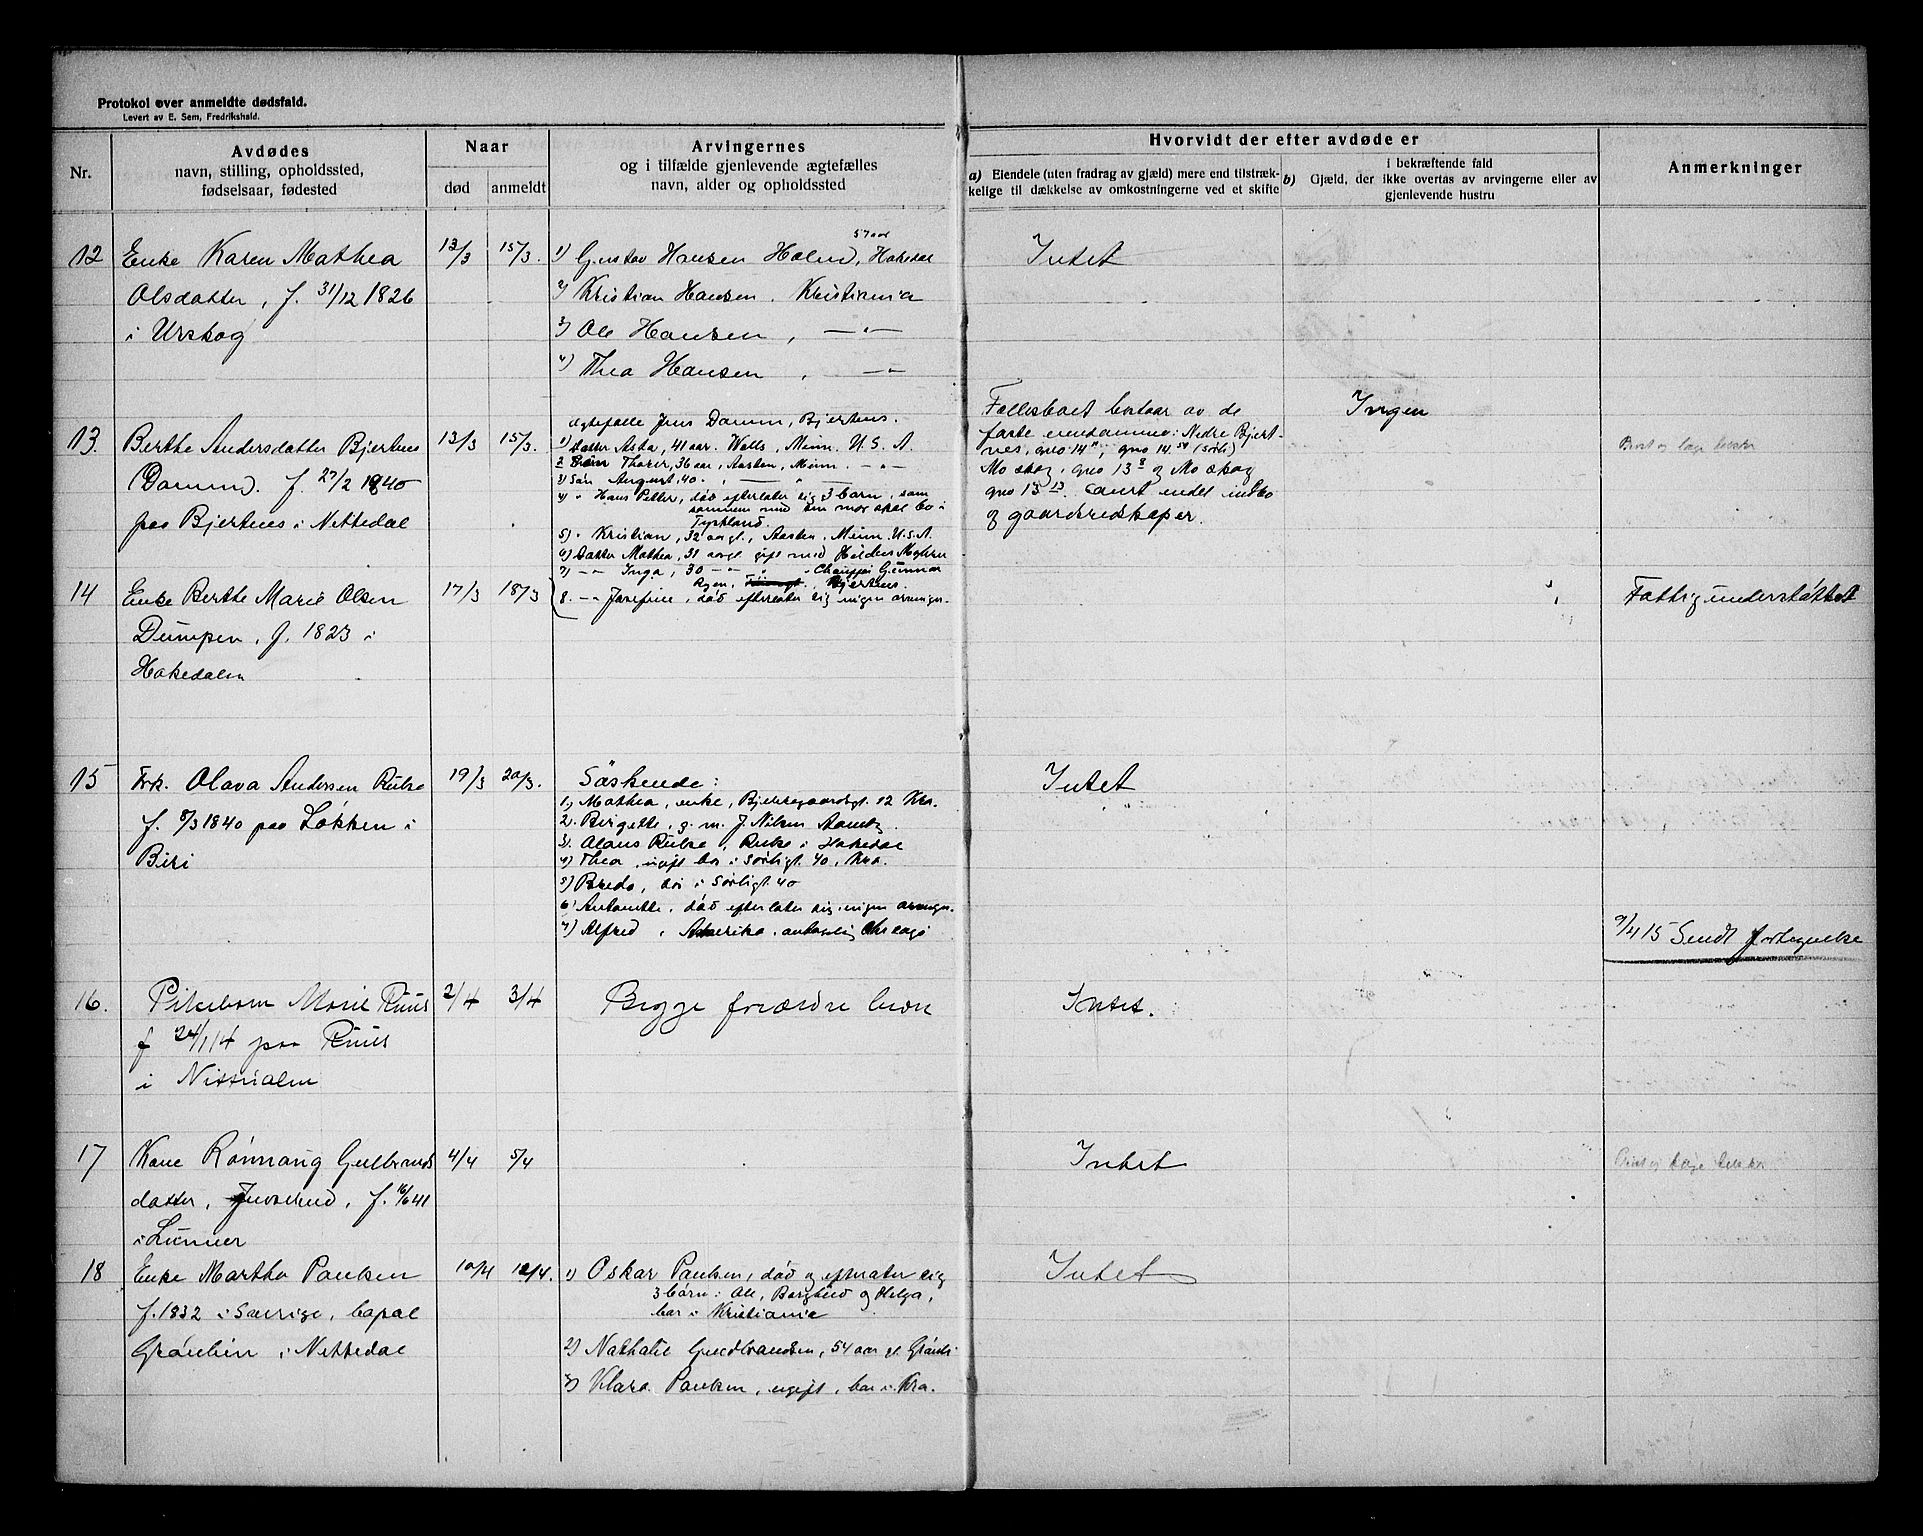 Protokol over anmeldte dødsfald.
Levert av E. Sem, Fredrikshald.
Nr.
Avdødes
navn, stilling, opholdssted,
fødselsaar, fødested
Naar
død
anmeldt
Arvingernes
og i tilfælde gjenlevende ægtefælles
navn, alder og opholdssted
Hvorvidt der efter avdøde er
a) Eiendele (uten fradrag av gjæld) mere end tilstræk-
kelige til dækkelse av omkostningerne ved et skifte
i bekræftende fald
b) Gjæld, der ikke overtas av arvingerne eller av
gjenlevende hustru
Anmerkninger
12
Enke Karen Mathea
Olsdatter, f. 31/12 1826
i Urskog
13/3
15/3.
57 aar
1) Gustav Hansen Holm, Hakedal
2) Kristian Hansen. Kristiania
3) Ole Hansen, —"—
4) Thea Hansen, —"—
Intet
13.
Berthe Andersdatter Bjertnes
Damm. f. 27/2 1840
paa Bjertnes i Nittedal
13/3
15/3.
Ægtefælle Jens Damm, Bjertnes.
1) Datter Asta, 41 aar. Wells, Minn. U.S.A.
2 Sön Thorer, 36 aar, Aasten, Minn. —"—
3) Sön August, 40. —"—
4) " Hans Petter, död efterlater sig 3 barn, som
sammen med sin mor skal bo i
Tyskland.
5) " Kristian, 32 aargl., Aasten, Minn. U.S.A.
6) Datter Mathea, 31 aargl. gift med
7) —"— Inga, 30 —"— " Chauffør Gunnar
Ryen, Bjertnes.
8. —"— Josefine, död efterlater sig ingen arvinger.
Fællesboet bestaar av de
faste eiendomme: Nedre Bjert-
nes, gno 14 11, gno 14.54 (Sørli)
Mo skog, gno 13 8 og Mo skog
gno 13 13. Samt endel indbo
og gaardsredskaper.
Ingen
14
Enke Berthe Marie Olsen
Dumpen, f. 1823 i
Hakedalen
17/3
18/3
Fattigunderstøttet
15
Frk. Olava Andersen Rukse
f. 8/3 1840 paa Løkken i
Biri
19/3
20/3.
Söskende:
1) Mathea, enke, Bjerregaardsgt. 12 Kra.
2. Birgette, g. m. J. Nilsen
3). Olaus Rukse, Rukse i Hakedal
4) Thea, ugift bor i Sørligt. 40, Kra.
5) Bredo, bor i Sørligt. 40
6) Antonette, död efterlater sig ingen arvinger.
7) Alfred, Amerika, antagelig Chicago
Intet
9/4 15 Sendt fortegnelse
16.
Pikebarn Marie Ruus
f 24/1 14 paa Ruus
i Nittedalen
2/4
3/4
Begge forældre lever
Intet.
17
Kone Rönnaug Gulbrands
datter, Juvserud, f. 16/6 41
i Lunner
4/4
5/4
Intet
18
Enke Martha Paulsen
f. 1832 i Sverige, bopæl
Grönlien i Nittedal
10/4
12/4.
1) Oskar Paulsen, död og efterlater sig
3 börn: Ole, Borghild og Helga,
bor i Kristiania
2) Nathalie Gundbrandsen, 54 aar gl. Grönli
3) Klara Paulsen, ugift, bor i Kra.
Intet